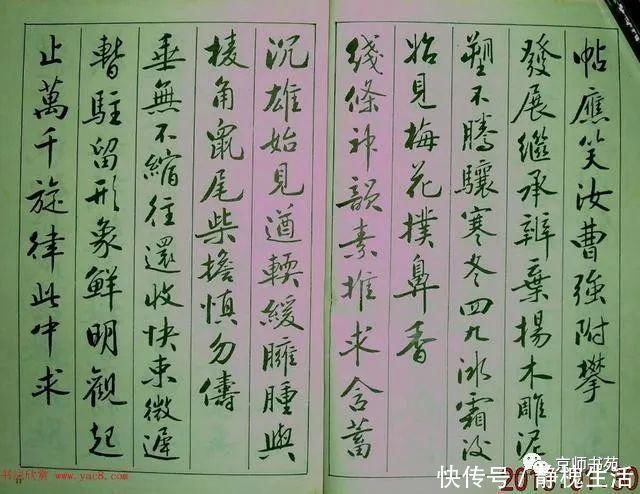 帖應笑汝曹強附攀
發展繼承辨棄揚木雕泥
塑不騰驤寒冬四九冰霜後
始見梅花撲鼻香
綫條神韻素推求含蓄
沉雄始見遒輭緩臃腫與
棱角鼠尾柴擔慎勿儔
垂無不縮往還收快束微遲
暫駐留形象鮮明觀起
止萬千旋律此中求
书法欣赏
www.yac8.com
京师书苑
快传号/静槐生活